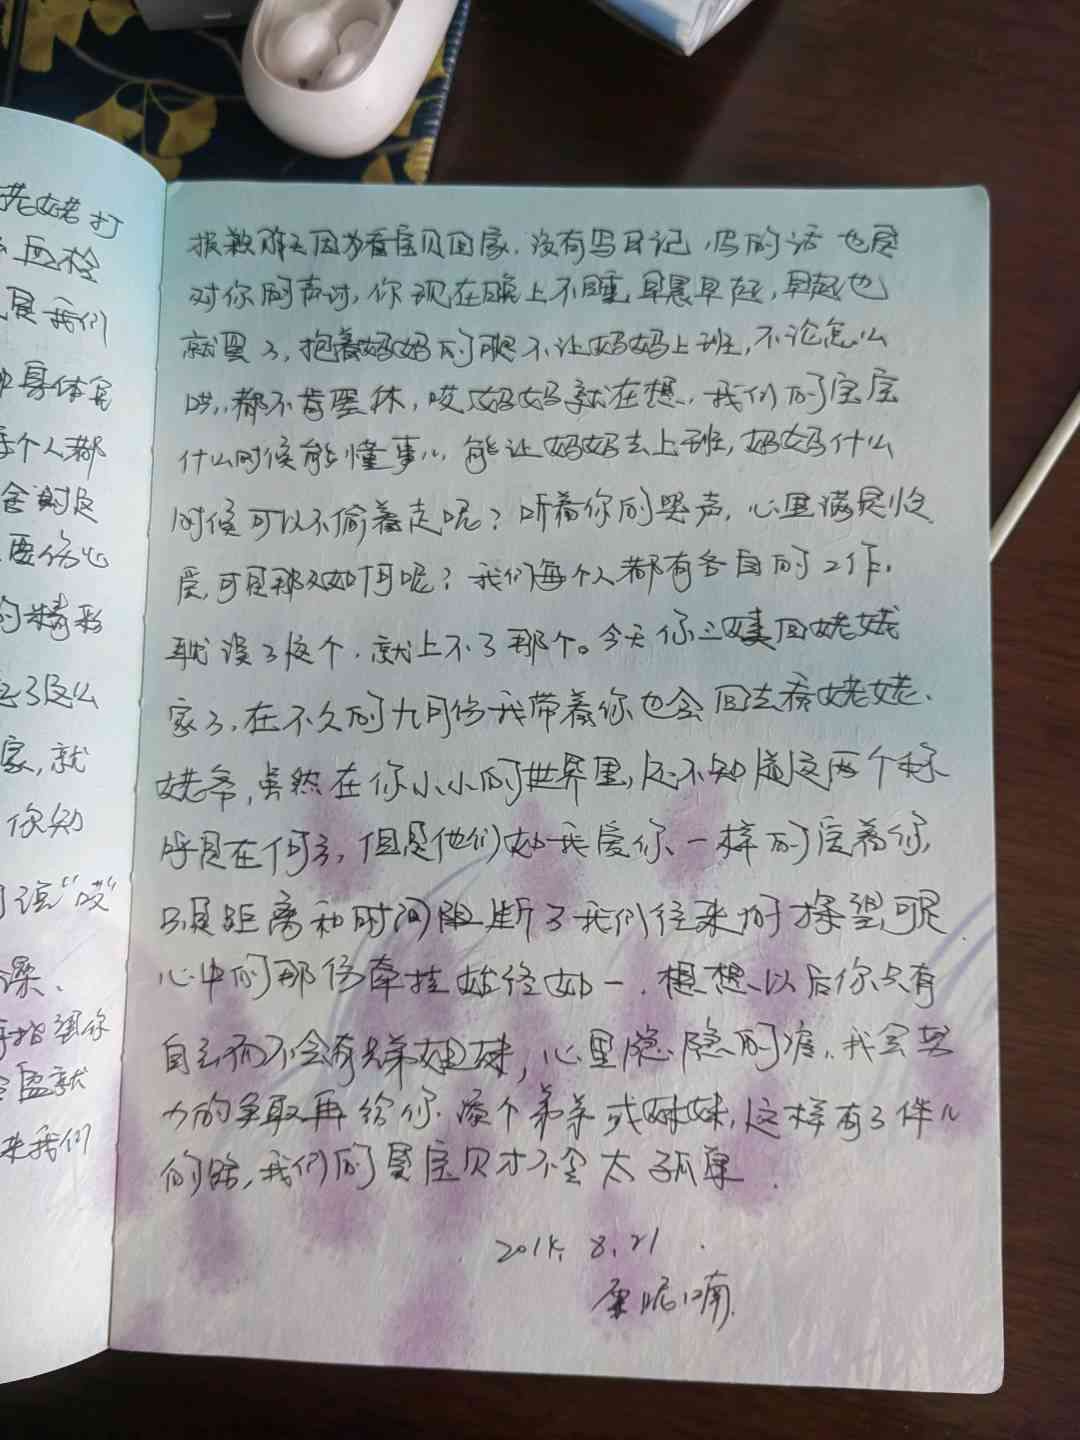 老姥打
血栓
是我们
身体完
个人都
要伤心
的精彩
了这么
家,就
你知
说“哎”
来我们
抱歉昨天因为看宝贝回家,没有写日记,写的话也是
对你的声讨,你现在晚上不睡,早晨早起,早起也
就罢了,抱着妈妈的腿不让妈妈上班,不论怎么
哄,都不肯罢休,哎妈妈就在想,我们的宝宝
什么时候能懂事儿,能让妈妈去上班,妈妈什么
时候可以不偷着走呢?听着你的哭声,心里满是
爱,可是那又如何呢?我们每个人都有各自的工作,
耽误了这个,就上不了那个。今天你三姨回姥姥
家了,在不久的九月份我带着你也会回去看姥姥、
姥爷,虽然在你小小的世界里,还不知道这两个称
呼是在何方,但是他们如我爱你一样的爱着你,
只是距离和时间阻断了我们往来的探望,可是
心中的那份牵挂始终如一,想想以后你只有
自己而不会有兄弟姐妹,心里隐隐的疼,我会努
力的争取再给你添个弟弟或妹妹,这样有了伴儿
的话,我们的宝贝才不会太孤单.
8.21
呢喃.